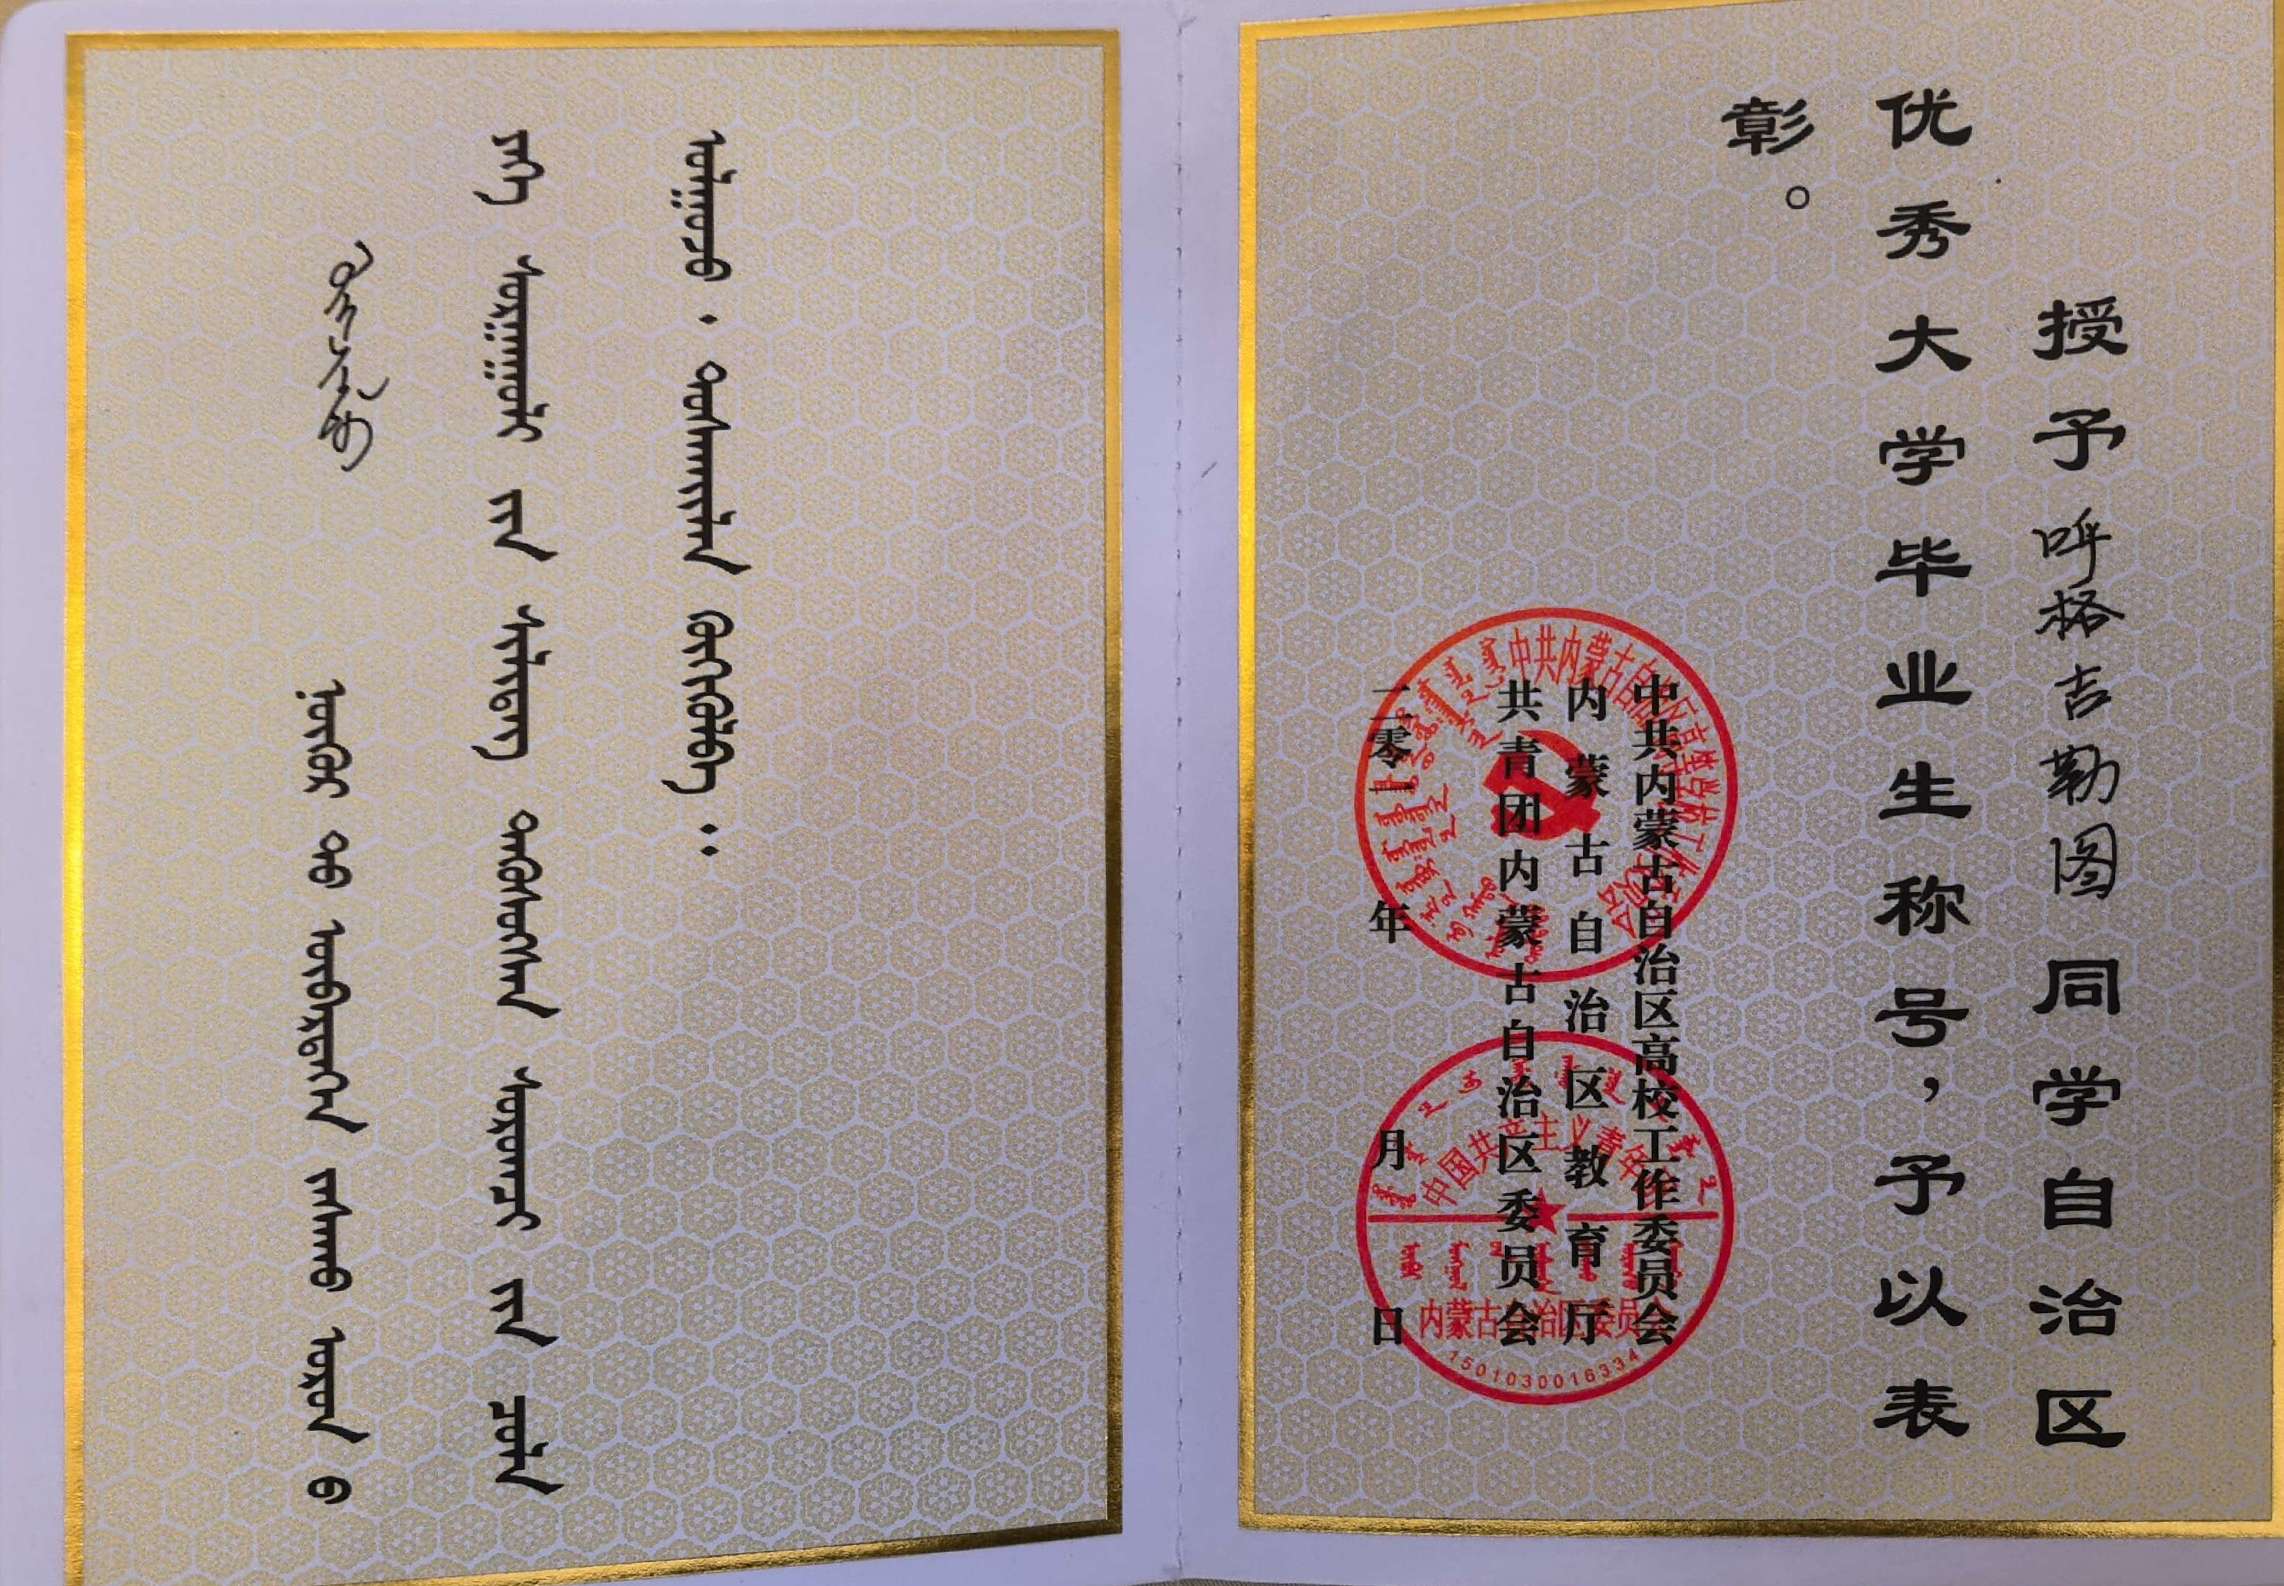 ᠬᠥᠭᠵᠢᠯᠲᠦ ᠨᠥᠬᠥᠷ ᠲᠦ ᠥᠪᠡᠷᠲᠡᠭᠡᠨ ᠵᠠᠰᠠᠬᠤ ᠣᠷᠣᠨ ᠤ
ᠶᠡᠬᠡ ᠰᠤᠷᠭᠠᠭᠤᠯᠢ ᠶᠢᠨ ᠰᠢᠯᠢᠳᠡᠭ ᠲᠡᠭᠦᠰᠦᠭᠰᠡᠨ ᠰᠤᠷᠤᠭᠴᠢ ᠶᠢᠨ ᠴᠣᠯᠠ
ᠣᠯᠭᠣᠵᠤ ᠂ ᠲᠤᠰᠬᠠᠶᠢᠯᠠᠨ ᠬᠥᠬᠢᠭᠦᠯᠪᠡᠢ ᠃
授予呼格吉勒图同学自治区
优秀大学毕业生称号，予以表
彰。
中共内蒙古自治区高校工作委员会
内蒙古自治区教育厅
共青团内蒙古自治区委员会
二零一 年 月 日
中国共产主义青年团
内蒙古自治区委员会
1501030016334